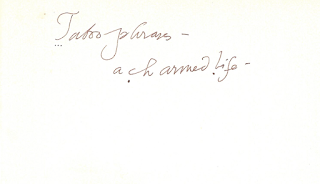 Taboo phrases -
a charmed life -